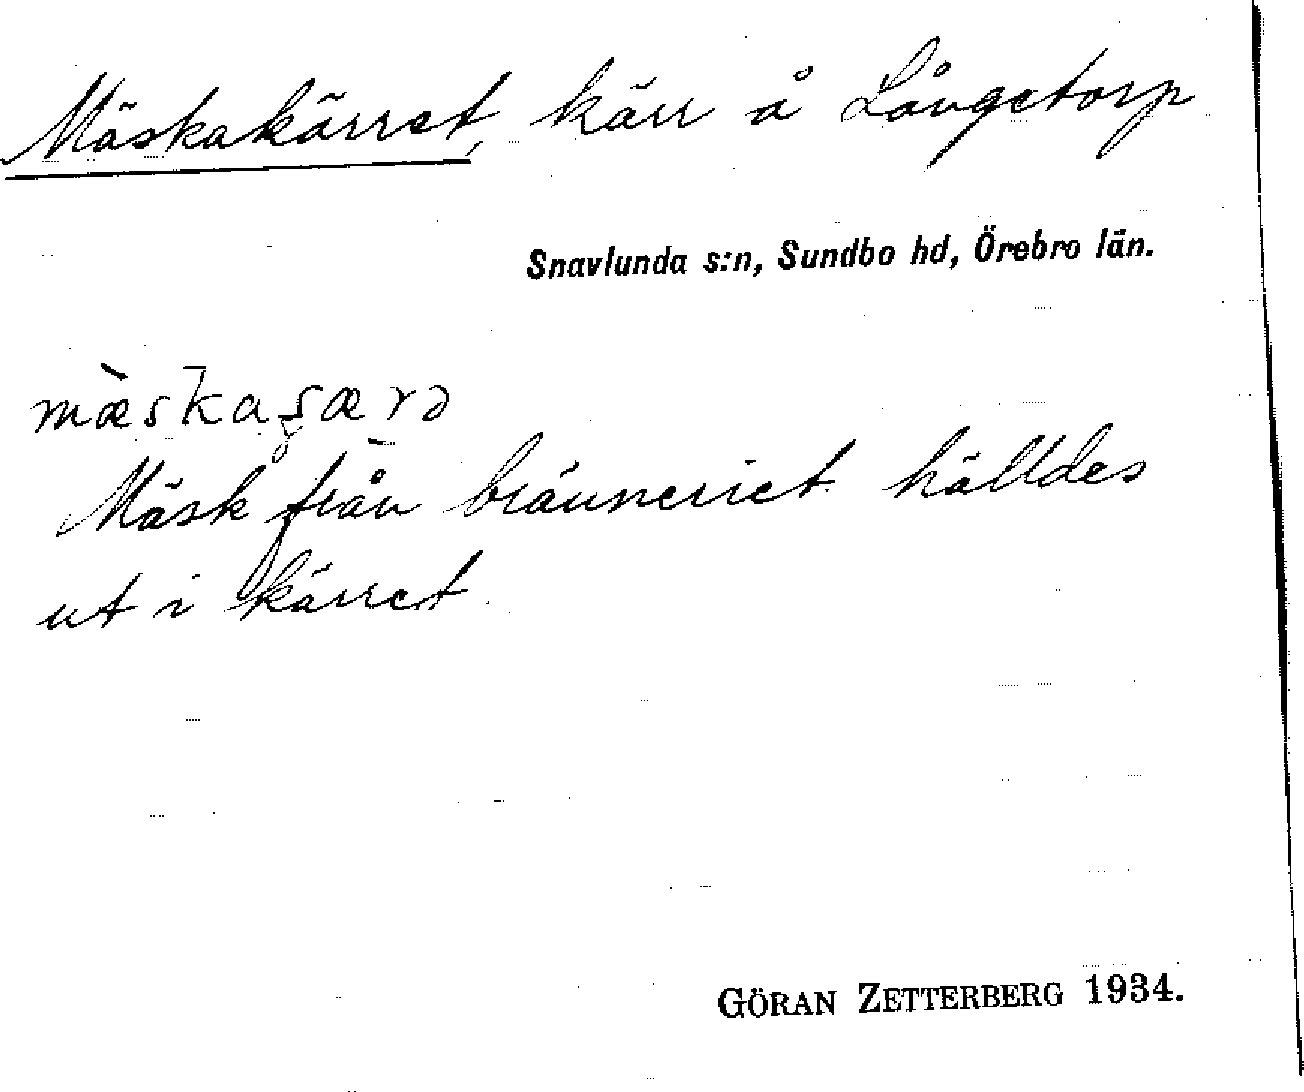 Mäskakärret, kärr å Långetorp
Snavlunda s:n, Sundbo hd, Örebro län.
mæ̀skaʂærə
Mäsk från bränneriet hälldes
ut i kärret
GÖRAN ZETTERBERG 1934.